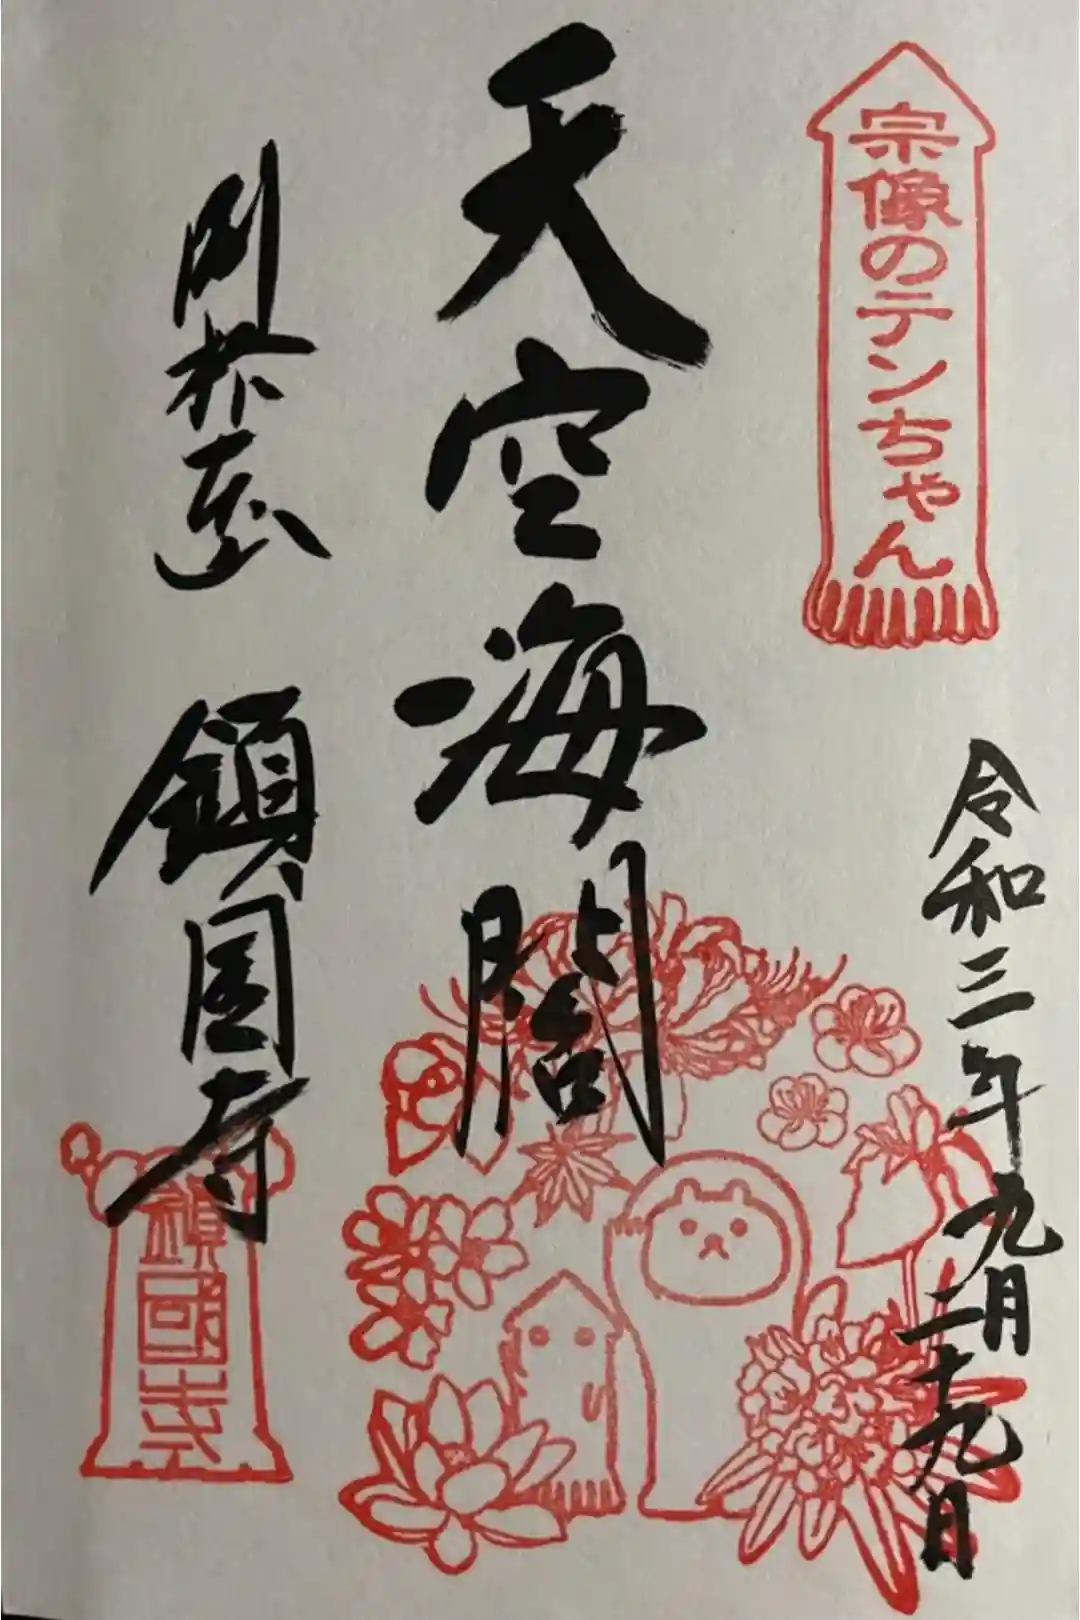 宗像のテンちゃん
令和三年九月二十九日
天空海闊
別格本山 鎮国寺
鎮國寺